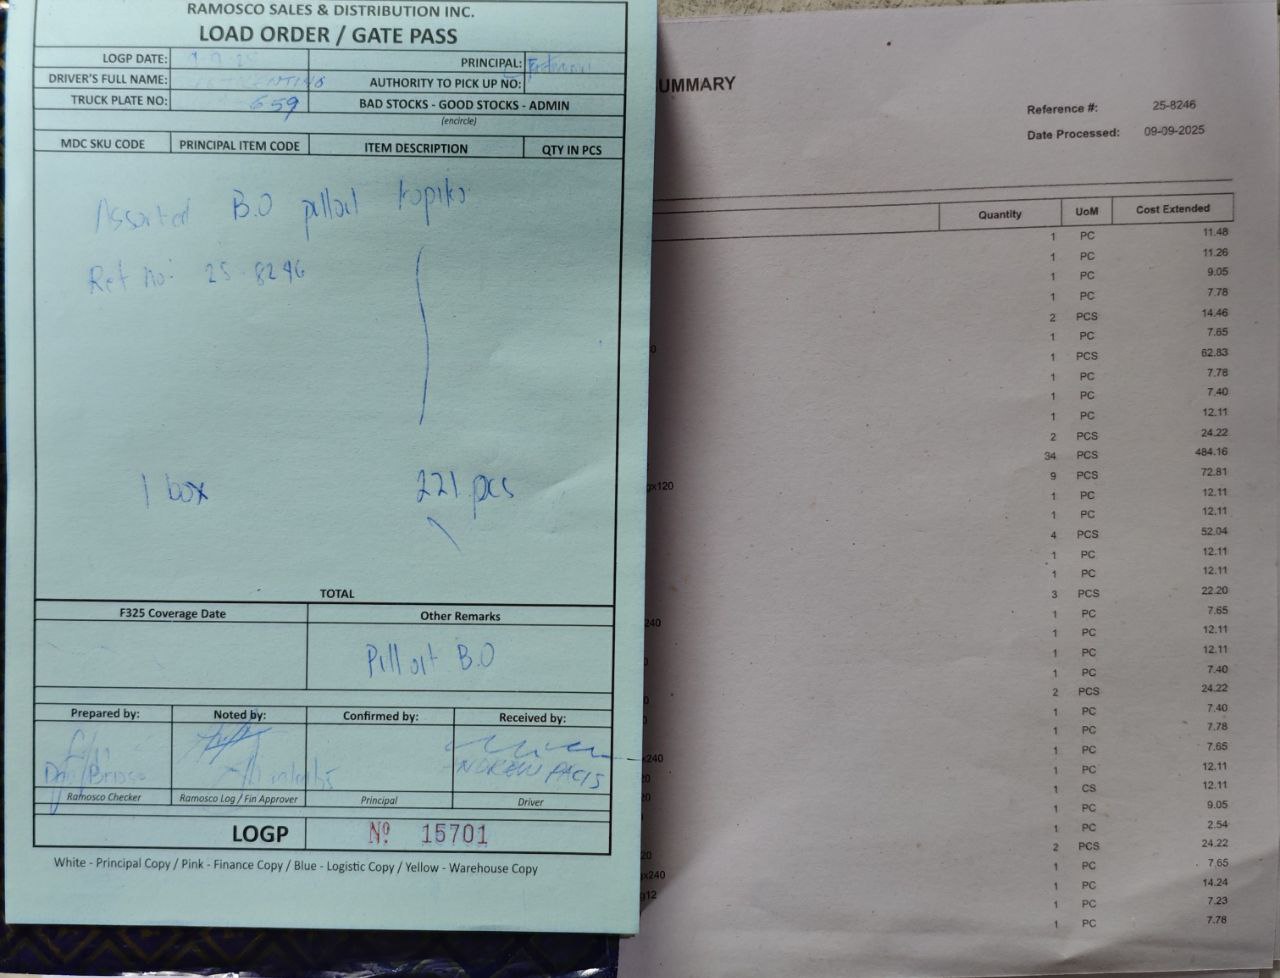 RAMOSCO SALES & DISTRIBUTION INC.
LOAD ORDER / GATE PASS
LOGP DATE:
PRINCIPAL:
DRIVER'S FULL NAME:
AUTHORITY TO PICK UP NO:
TRUCK PLATE NO: 659
BAD STOCKS - GOOD STOCKS - ADMIN
(encircle)
MDC SKU CODE PRINCIPAL ITEM CODE ITEM DESCRIPTION QTY IN PCS
Assorted B.O kopiko
Ref no: 25-8246
1 box 221 pcs
TOTAL
F325 Coverage Date Other Remarks
B.O
Prepared by: Noted by: Confirmed by: Received by:
ANDREW PACIS
Ramosco Checker Ramosco Log / Fin Approver Principal Driver
LOGP Nº 15701
White - Principal Copy / Pink - Finance Copy / Blue - Logistic Copy / Yellow - Warehouse Copy
UMMARY
Reference #: 25-8246
Date Processed: 09-09-2025
Quantity UoM Cost Extended
1 PC 11.48
1 PC 11.26
1 PC 9.05
1 PC 7.78
2 PCS 14.46
1 PC 7.65
0 1 PCS 62.83
1 PC 7.78
1 PC 7.40
1 PC 12.11
2 PCS 24.22
34 PCS 484.16
9 PCS 72.81
gx120 1 PC 12.11
1 PC 12.11
4 PCS 52.04
1 PC 12.11
1 PC 12.11
3 PCS 22.20
240 1 PC 7.65
1 PC 12.11
1 PC 12.11
1 PC 7.40
2 PCS 24.22
1 PC 7.40
1 PC 7.78
x240 1 PC 7.65
20 1 PC 12.11
20 1 CS 12.11
1 PC 9.05
1 PC 2.54
20 2 PCS 24.22
x240 1 PC 7.65
g12 1 PC 14.24
1 PC 7.23
1 PC 7.78